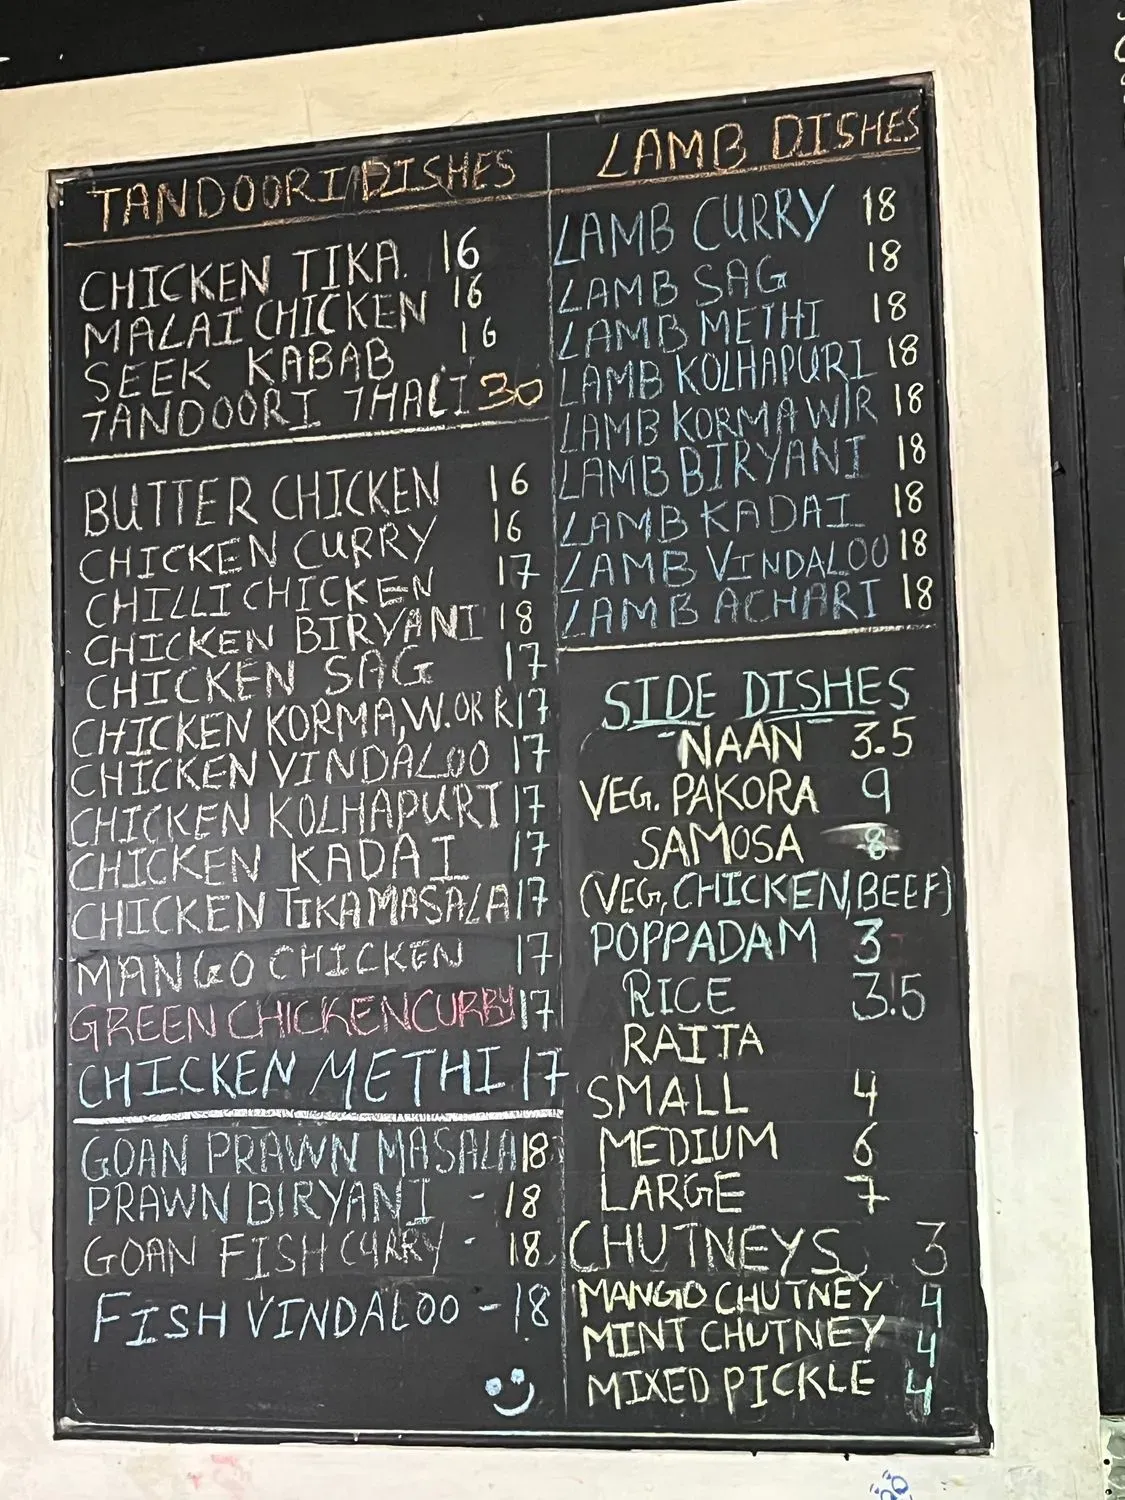 TANDOORI DISHES
CHICKEN TIKA. 16
MALAI CHICKEN 16
SEEK KABAB 16
TANDOORI THALI 30
BUTTER CHICKEN 16
CHICKEN CURRY 16
CHILLI CHICKEN 17
CHICKEN BIRYANI 18
CHICKEN SAG 17
CHICKEN KORMA, W. OR K 17
CHICKEN VINDALOO 17
CHICKEN KOLHAPURI 17
CHICKEN KADAI 17
CHICKEN TIKA MASALA 17
MANGO CHICKEN 17
GREEN CHICKEN CURRY 17
CHICKEN METHI 17
GOAN PRAWN MASALA 18
PRAWN BIRYANI - 18
GOAN FISH CURRY - 18
FISH VINDALOO - 18
LAMB DISHES
LAMB CURRY 18
LAMB SAG 18
LAMB METHI 18
LAMB KOLHAPURI 18
LAMB KORMA 18
LAMB BIRYANI 18
LAMB KADAI 18
LAMB VINDALOO 18
LAMB ACHARI 18
SIDE DISHES
NAAN 3.5
VEG. PAKORA 9
SAMOSA 8
(VEG, CHICKEN, BEEF)
POPPADAM 3
RICE 3.5
RAITA
SMALL 4
MEDIUM 6
LARGE 7
CHUTNEYS 3
MANGO CHUTNEY 4
MINT CHUTNEY 4
MIXED PICKLE 4